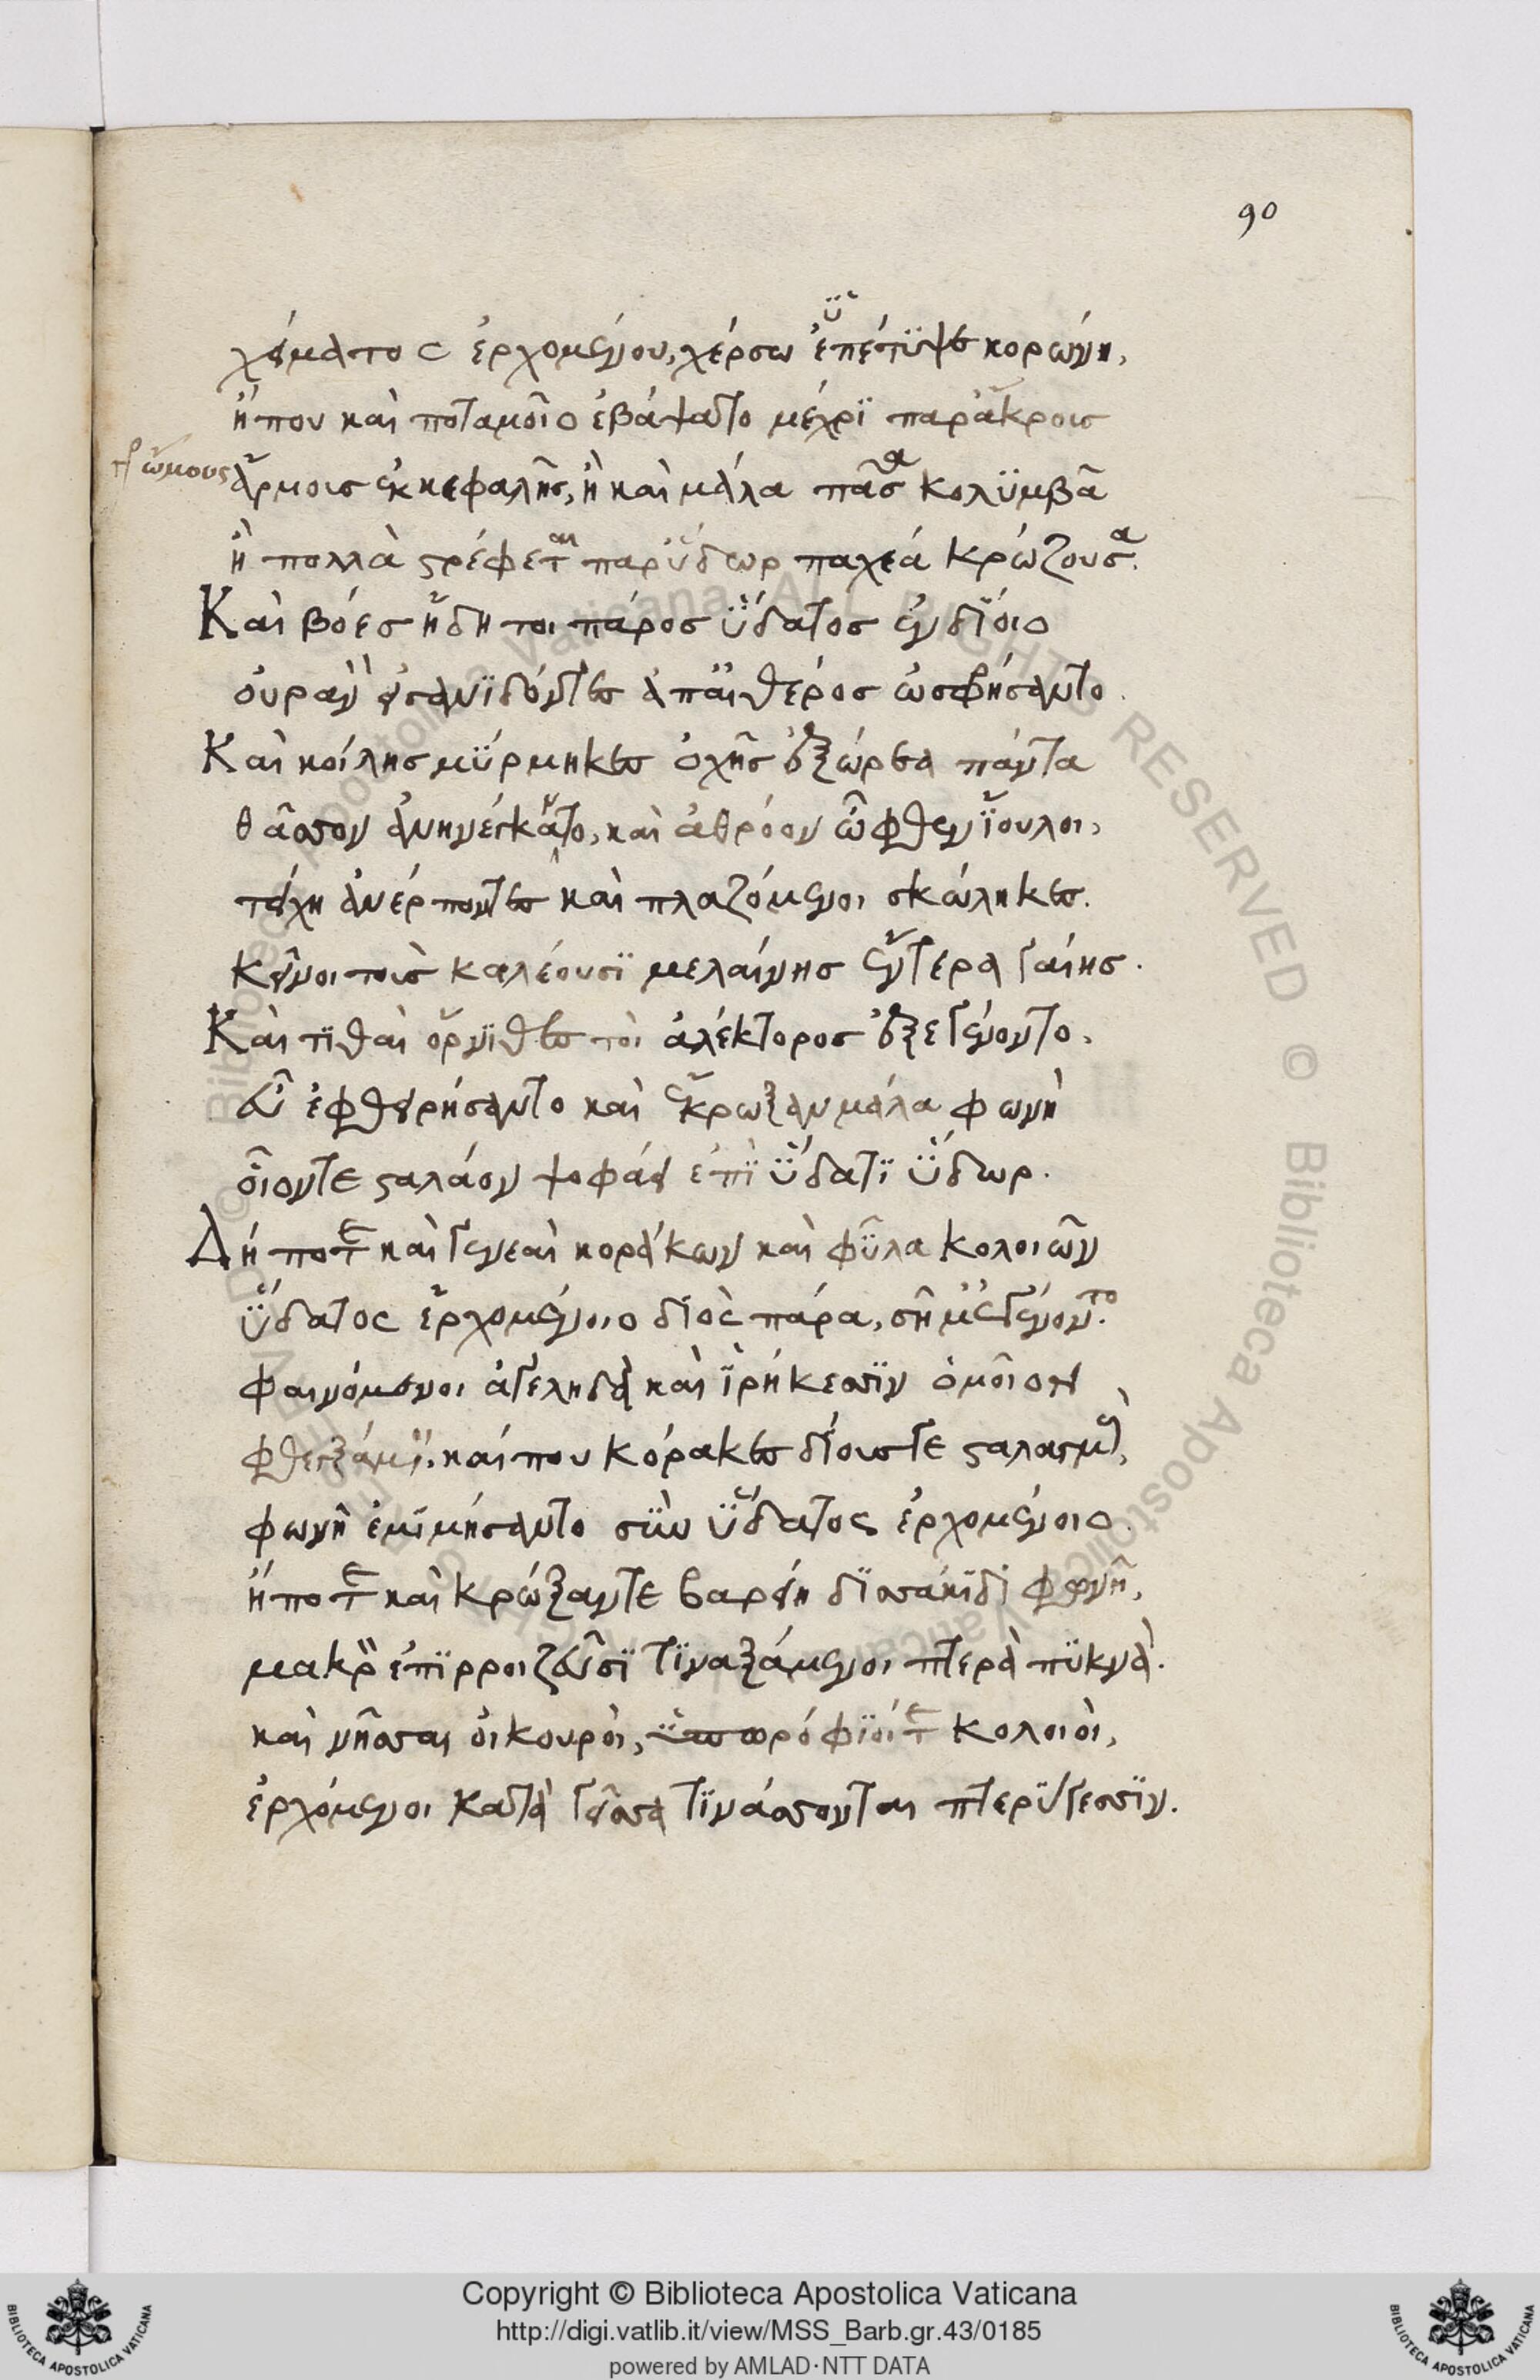 90
χείματος ἐρχομένου, χέρσω ἐπέτϋψε κορώνη,
ἤπου καὶ ποταμοῖο ἐβάψατο μέχρϊ παρἄκροις
γρ ὤμους
ἄρμοις ἐκ κεφαλῆς, ἢ καὶ μάλα πᾶσα κολϋμβᾶ
ἢ πολλὰ στρέφεται παρ ὕδωρ παχέα κρώζουσα.
Καὶ βόες ἤδη τοι πάρος ὕδατος ἐνδΐοιο
οὐρανὸν εἰσανϊδόντες ἀπ αἰθέρος ὠσφρήσαντο.
Καὶ κοίλης μΰρμηκες ὀχῆς ἐξ ὤρεα πάντα
θᾶσσον ἀνηνέγκαντο, καὶ ἀθρόον ὦφθεν ἴουλοι,
τείχη ἀνέρποντες καὶ πλαζόμενοι σκώληκες.
κεῖνοι τοὺς καλέουσϊ μελαίνης ἔντερα γαίης.
Καὶ τϊθαὶ ὄρνϊθες τοὶ ἀλέκτορος ἐξεγένοντο,
εὖ ἐφθειρήσαντο καὶ ἔκρωξαν μάλα φωνὴ
οἷόν τε σταλάον ψοφάει ἐπϊ ὕδατϊ ὕδωρ.
Δή ποτε καὶ γενεαὶ κοράκων καὶ φῦλα κολοιῶν
ὕδατος ἐρχομένοιο διὸς πάρα, σῆμ ἐγένοντο.
φαινόμενοι ἀγεληδὰ καὶ ἰρήκεσσϊν ὁμοῖον
φθεγξάμενοι. καί που κόρακες δίους τε σταλαγμοὺς,
φωνῆ ἐμϊμήσαντο σὺν ὕδατος ἐρχομένοιο.
ἤ ποτε καὶ κρώξαντε βαρείη δϊσσάκϊδϊ φωνῆ,
μακρὸν ἐπϊρροιζεῦσϊ τϊναξάμενοι πτερὰ πϋκνά.
καὶ νῆσσαι οἰκουροὶ, ὑπωρόφϊοί τε κολοιοὶ,
ἐρχόμενοι κατὰ γεῖσσα τϊνάσσονται πτερΰγεσσϊν.
Copyright © Biblioteca Apostolica Vaticana
http://digi.vatlib.it/view/MSS_Barb.gr.43/0185
powered by AMLAD·NTT DATA
BIBLIOTECA APOSTOLICA VATICANA
BIBLIOTECA APOSTOLICA VATICANA